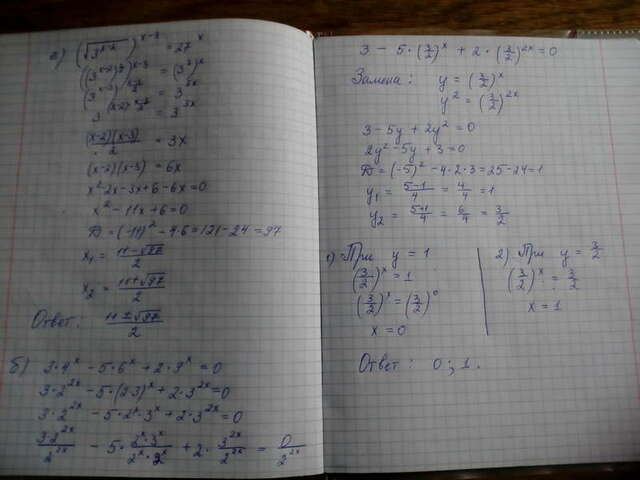 а) (√3^(x-2))^(x-3) = 27^x
((3^(x-2))^(1/2))^(x-3) = (3^3)^x
(3^(x-2))^((x-3)/2) = 3^(3x)
3^((x-2)·(x-3)/2) = 3^(3x)
(x-2)(x-3)/2 = 3x
(x-2)(x-3) = 6x
x² - 2x - 3x + 6 - 6x = 0
x² - 11x + 6 = 0
D = (-11)² - 4·6 = 121 - 24 = 97
x₁ = (11 - √97)/2
x₂ = (11 + √97)/2
Ответ: (11 ± √97)/2
б) 3·4^x - 5·6^x + 2·9^x = 0
3·2^(2x) - 5·(2·3)^x + 2·3^(2x) = 0
3·2^(2x) - 5·2^x·3^x + 2·3^(2x) = 0
3·2^(2x)/2^(2x) - 5·(2^x·3^x)/(2^x·2^x) + 2·3^(2x)/2^(2x) = 0/2^(2x)
3 - 5·(3/2)^x + 2·(3/2)^(2x) = 0
Замена: y = (3/2)^x
y² = (3/2)^(2x)
3 - 5y + 2y² = 0
2y² - 5y + 3 = 0
D = (-5)² - 4·2·3 = 25 - 24 = 1
y₁ = (5-1)/4 = 4/4 = 1
y₂ = (5+1)/4 = 6/4 = 3/2
1) При y = 1
(3/2)^x = 1
(3/2)^x = (3/2)^0
x = 0
2) При y = 3/2
(3/2)^x = 3/2
x = 1
Ответ: 0; 1.